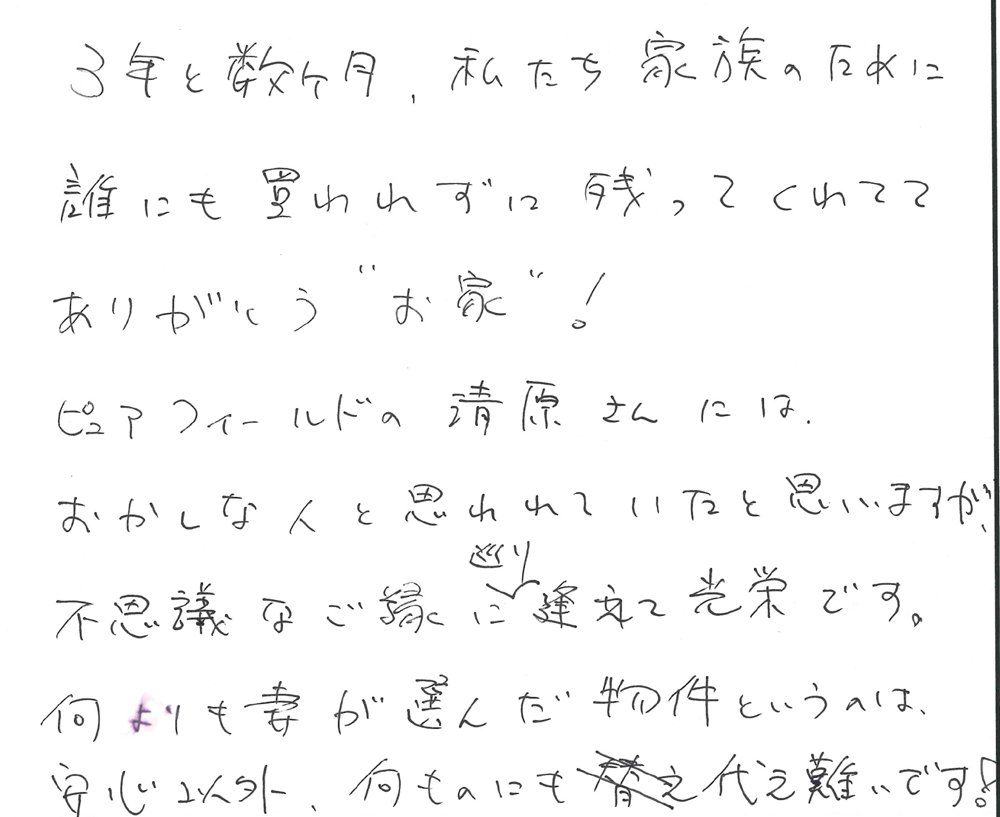 3年と数ケ月、私たち家族のために
誰にも買われずに残ってくれてて
ありがとう"お家"!
ピュアフィールドの清原さんには、
おかしな人と思われていたと思いますが、
不思議なご縁に巡り逢えて光栄です。
何よりも妻が選んだ物件というのは、
安心以外、何ものにも替え代え難いです!